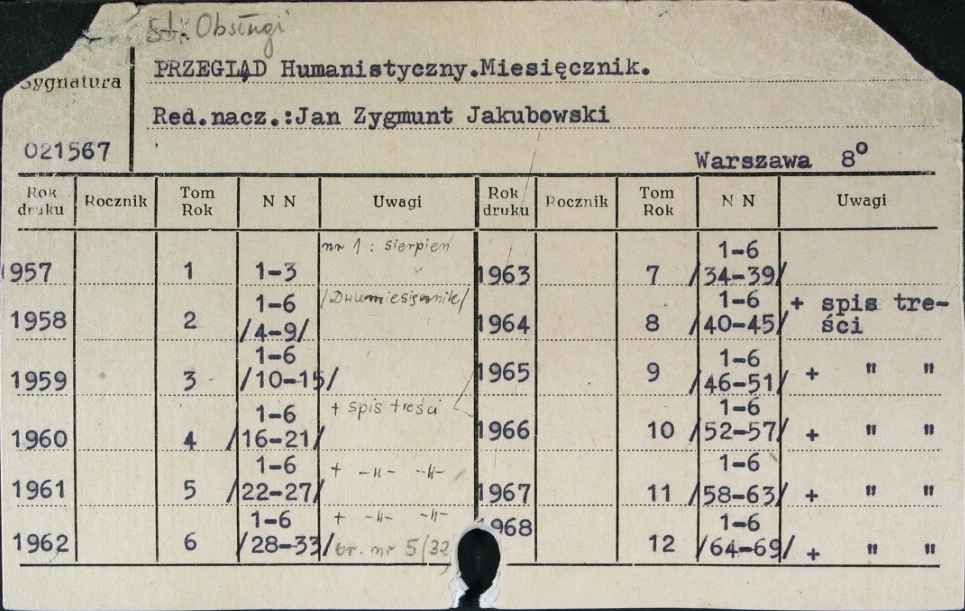 st. Obsługi
Sygnatura
PRZEGLĄD Humanistyczny.Miesięcznik.
Red.nacz.:Jan Zygmunt Jakubowski
021567
Warszawa 8°
Rok druku Rocznik Tom Rok N N Uwagi Rok druku Rocznik Tom Rok N N Uwagi
1957 1 1-3 nr 1 : sierpień
1963 7 1-6 /34-39/
1958 2 1-6 /4-9/ /Dwumiesięcznik/
1964 8 1-6 /40-45/ + spis tre-
ści
1959 3 1-6 /10-15/
1965 9 1-6 /46-51/ + " "
1960 4 1-6 /16-21/ + spis treści
1966 10 1-6 /52-57/ + " "
1961 5 1-6 /22-27/ + -"- -"-
1967 11 1-6 /58-63/ + " "
1962 6 1-6 /28-33/ + -"- -"-
br. nr 5(32)
1968 12 1-6 /64-69/ + " "